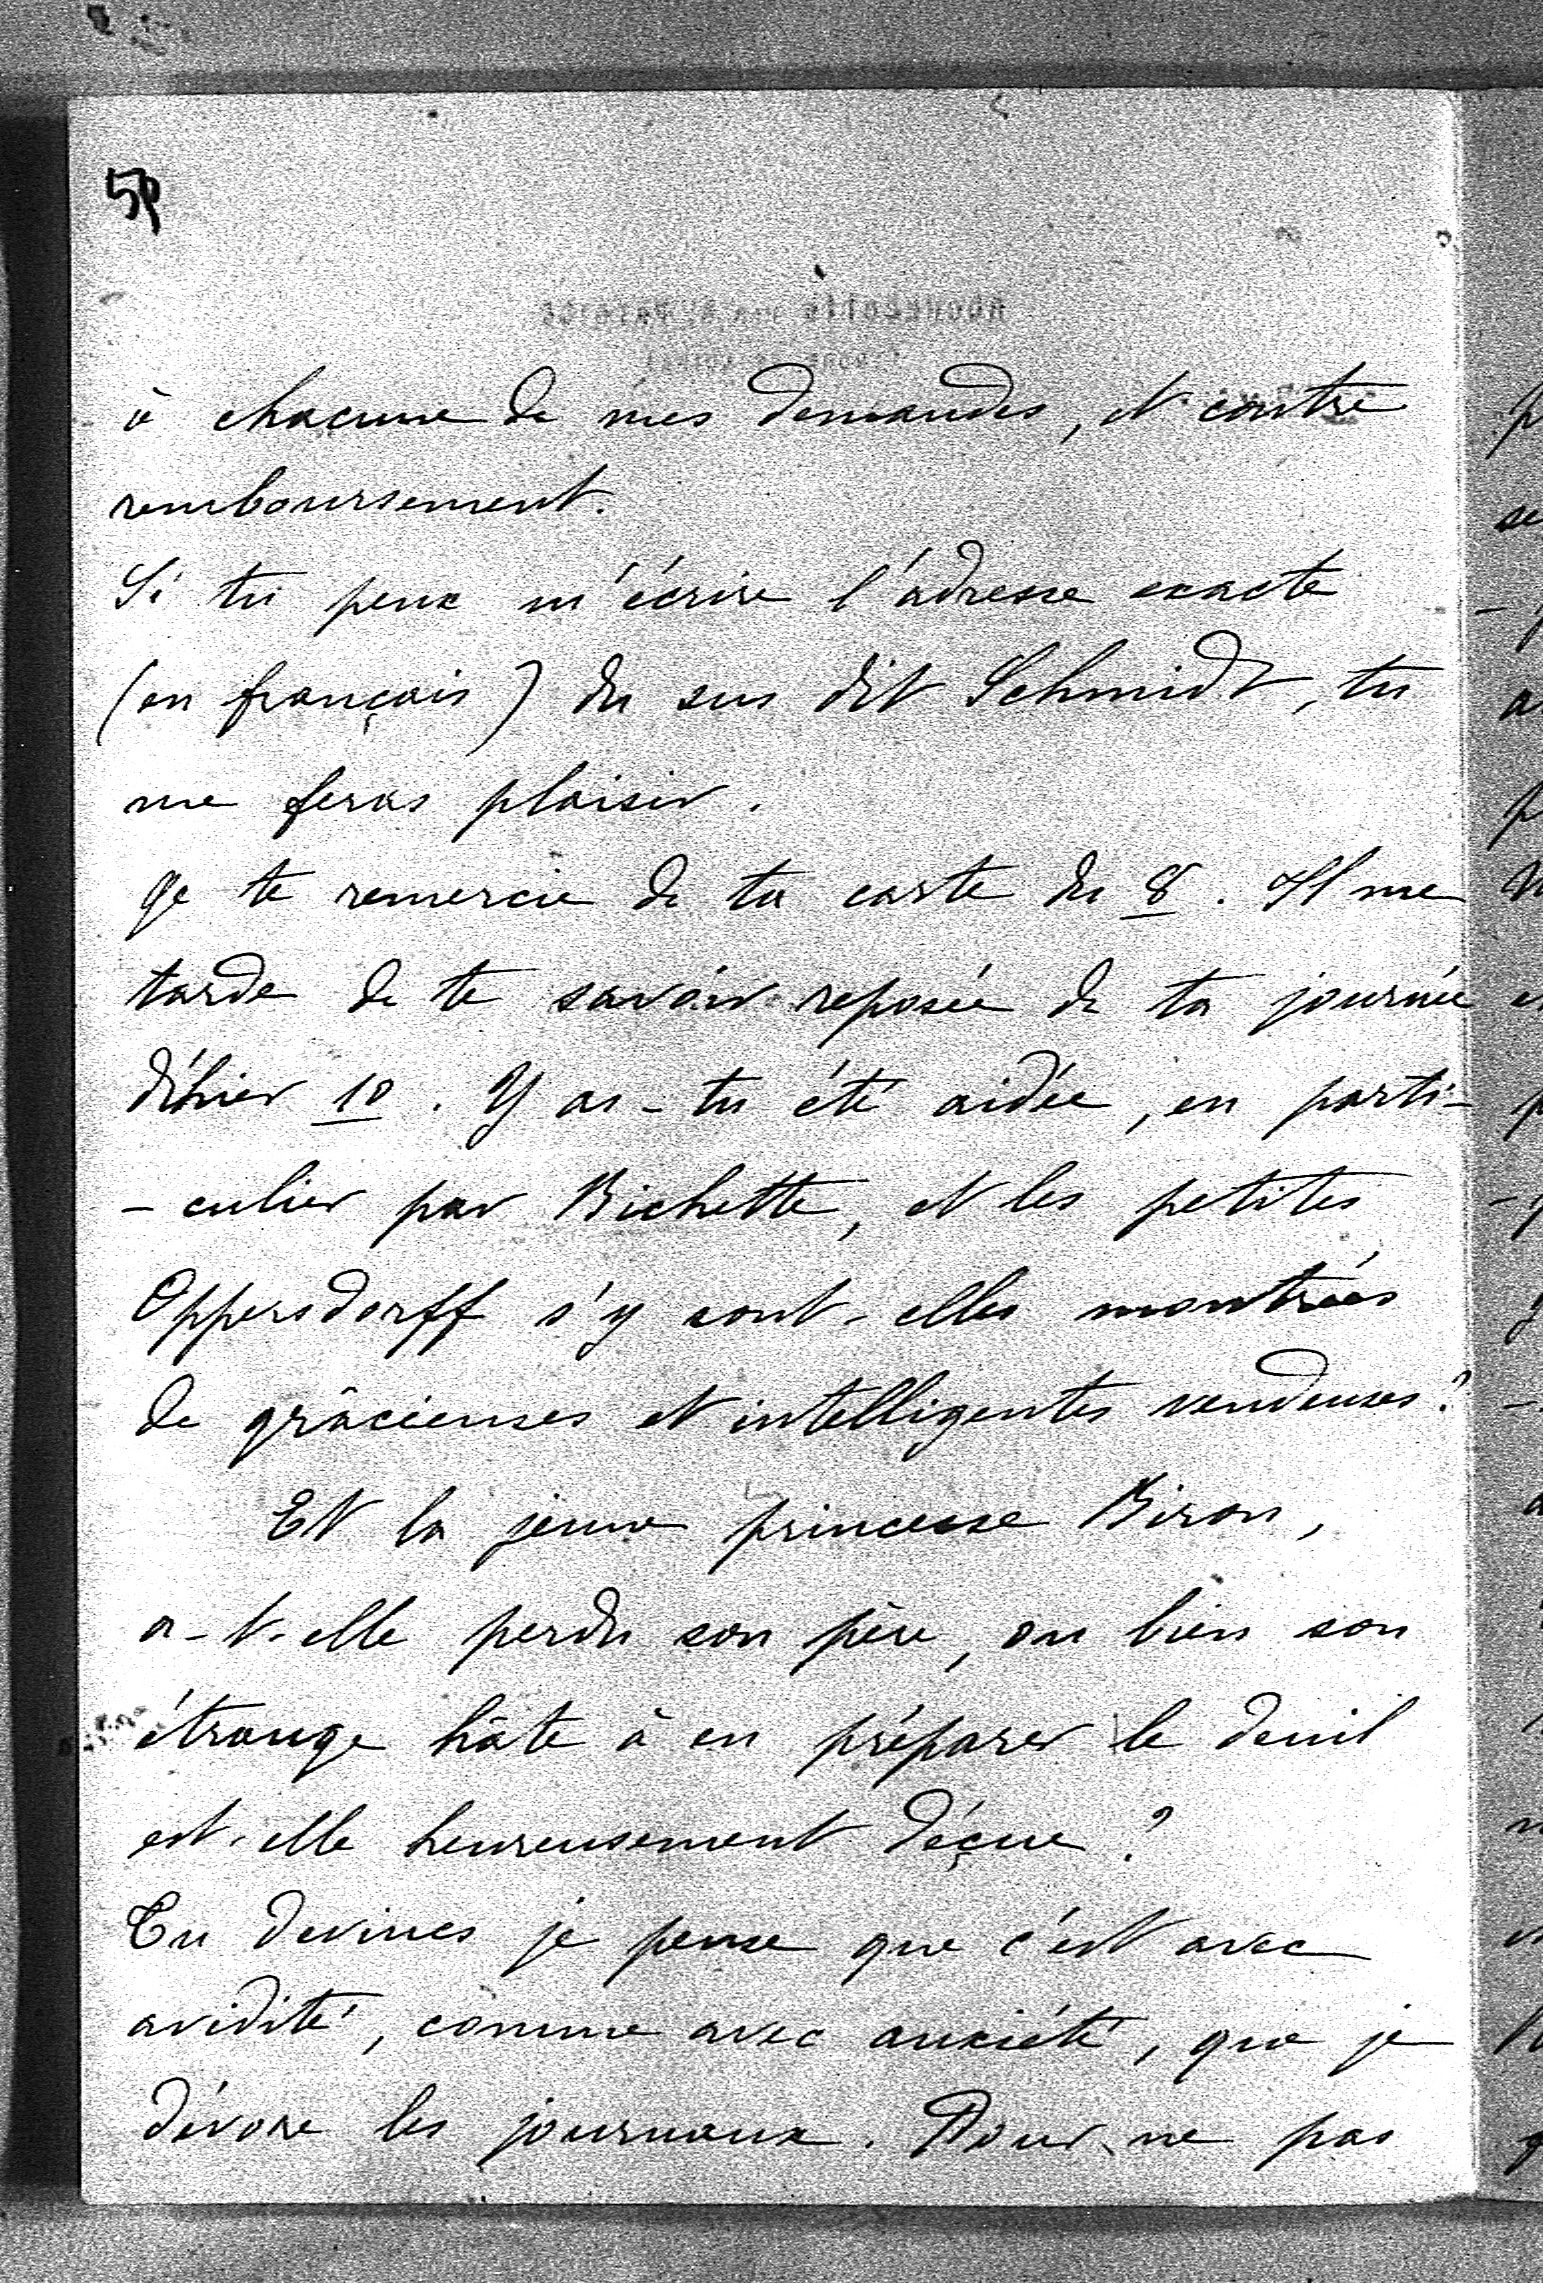 5P
à chacune de mes demandes, et contre
remboursement.
Si tu peux m'écrire l'adresse exacte
(en français) du sus dit Schmidt, tu
me feras plaisir.
Je te remercie de ta carte du 8. Il me
tarde de te savoir reposée de ta journée
d'hier 10. Y as-tu été aidée, en parti-
-culier par Bichette, et les petites
Oppersdorff s'y sont-elles montrées
de grâcieuses et intelligentes vendeuses?
Et la jeune princesse Biron,
a-t-elle perdu son père, ou bien son
étrange hâte à en préparer le deuil
est-elle heureusement déçue?
Tu devines je pense que c'est avec
avidité, comme avec anxiété, que je
dévore les journaux. Pour ne pas